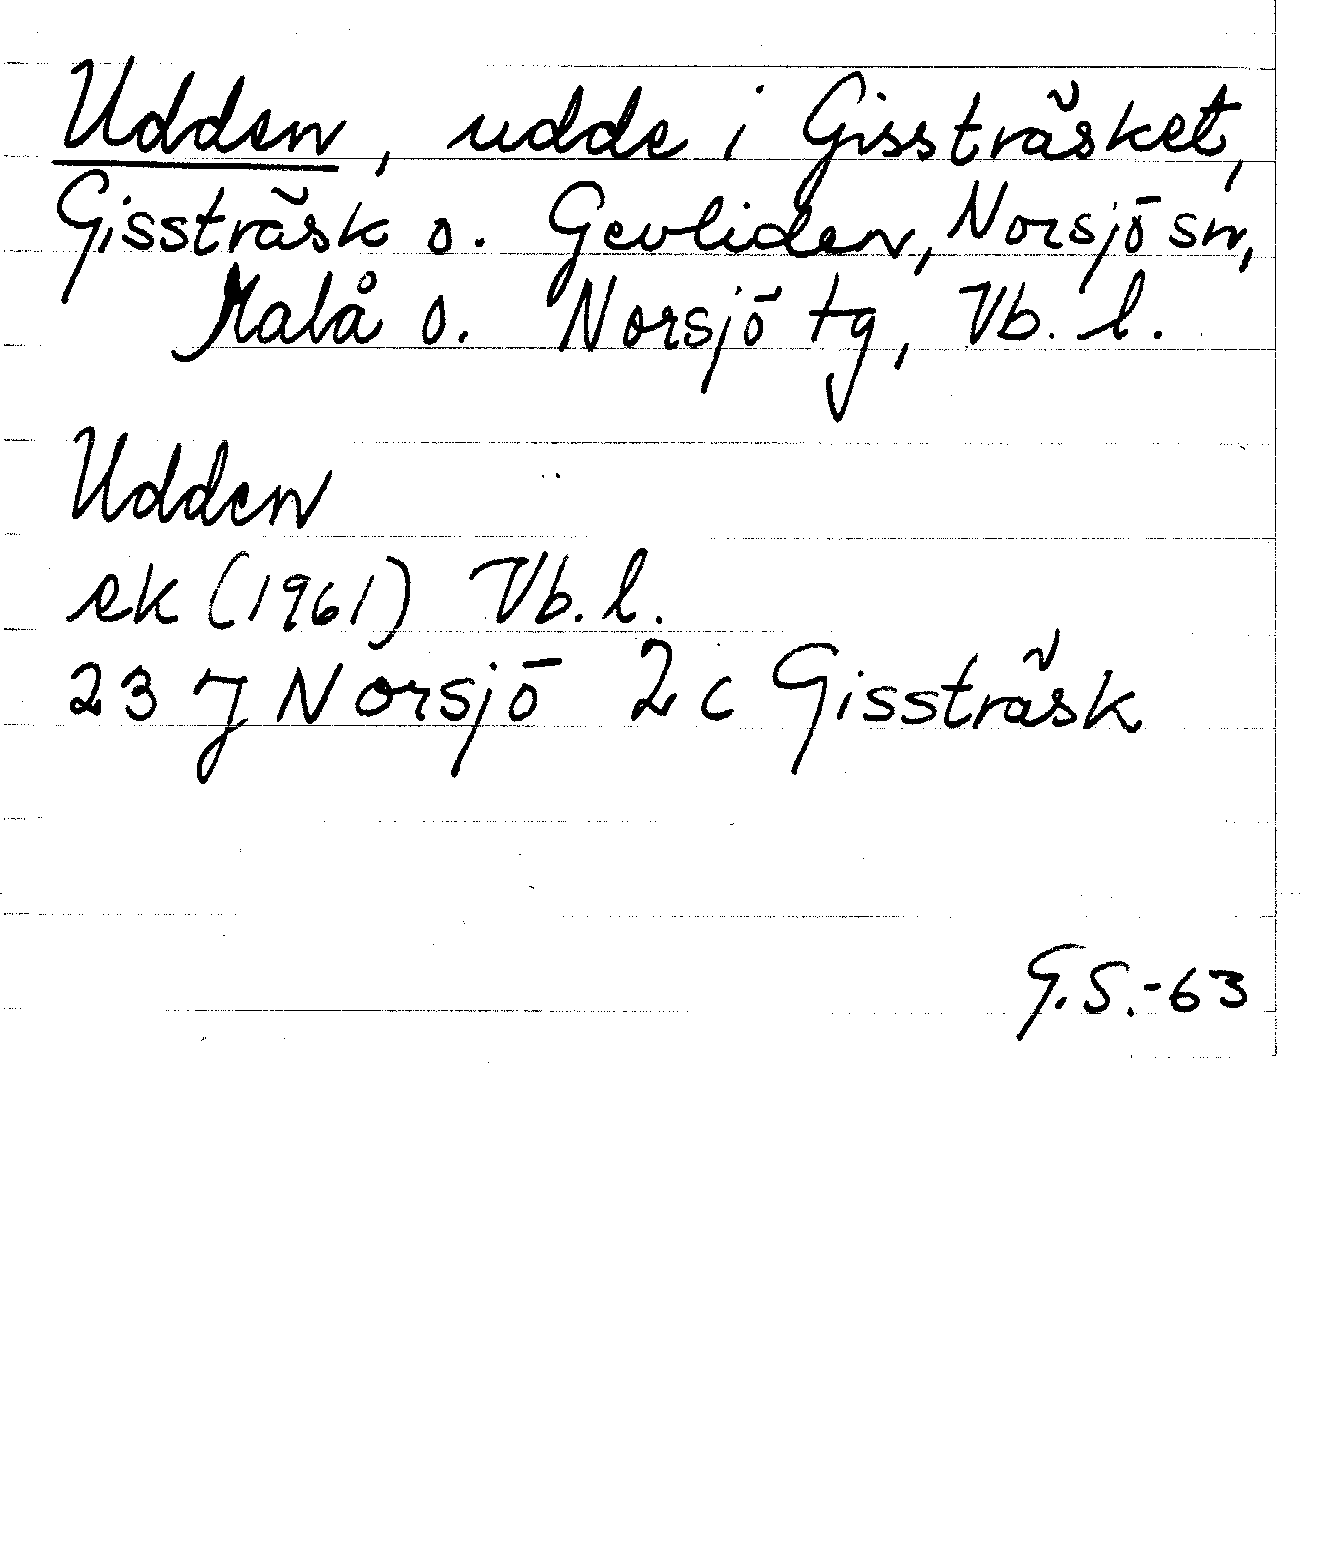 Udden, udde i Gissträsket,
Gissträsk o. Gevliden, Norsjö sn,
Malå o. Norsjö tg, Vb. l.
Udden
ek (1961) Vb. l.
23 J Norsjö 2 c Gissträsk
G.S.-63